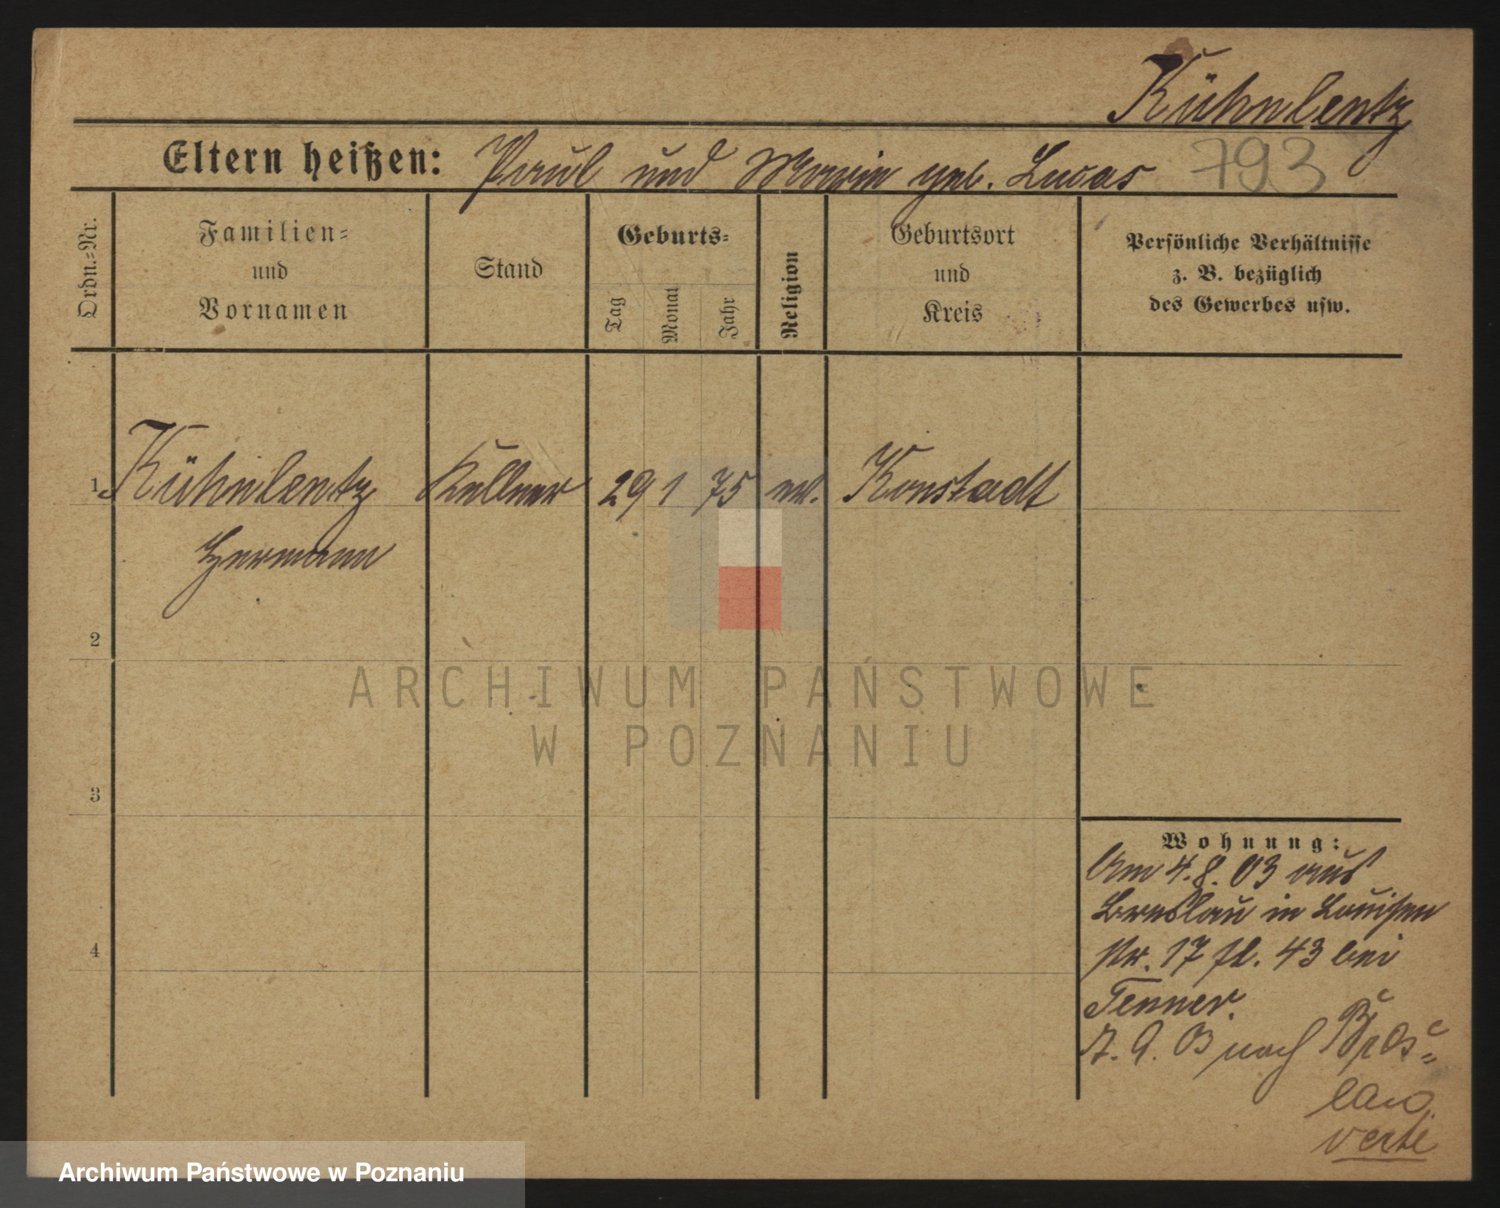 Kühnlentz
Eltern heißen: Paul und Marie geb. Lucas 793
Ordn.-Nr.
Familien-
und
Vornamen
Stand
Geburts-
Tag
Monat
Jahr
Religion
Geburtsort
und
Kreis
Persönliche Verhältnisse
z. B. bezüglich
des Gewerbes usw.
1 Kühnlentz Kellner 29 1 75 ev. Konstadt
Hermann
2
ARCHIWUM PAŃSTWOWE
W POZNANIU
3
4
Wohnung:
Am 4.8.03 aus
Breslau in Louisen
str. 17 fl. 43 bei
Tenner.
9. 03 nach Bres-
lau.
verte
Archiwum Państwowe w Poznaniu